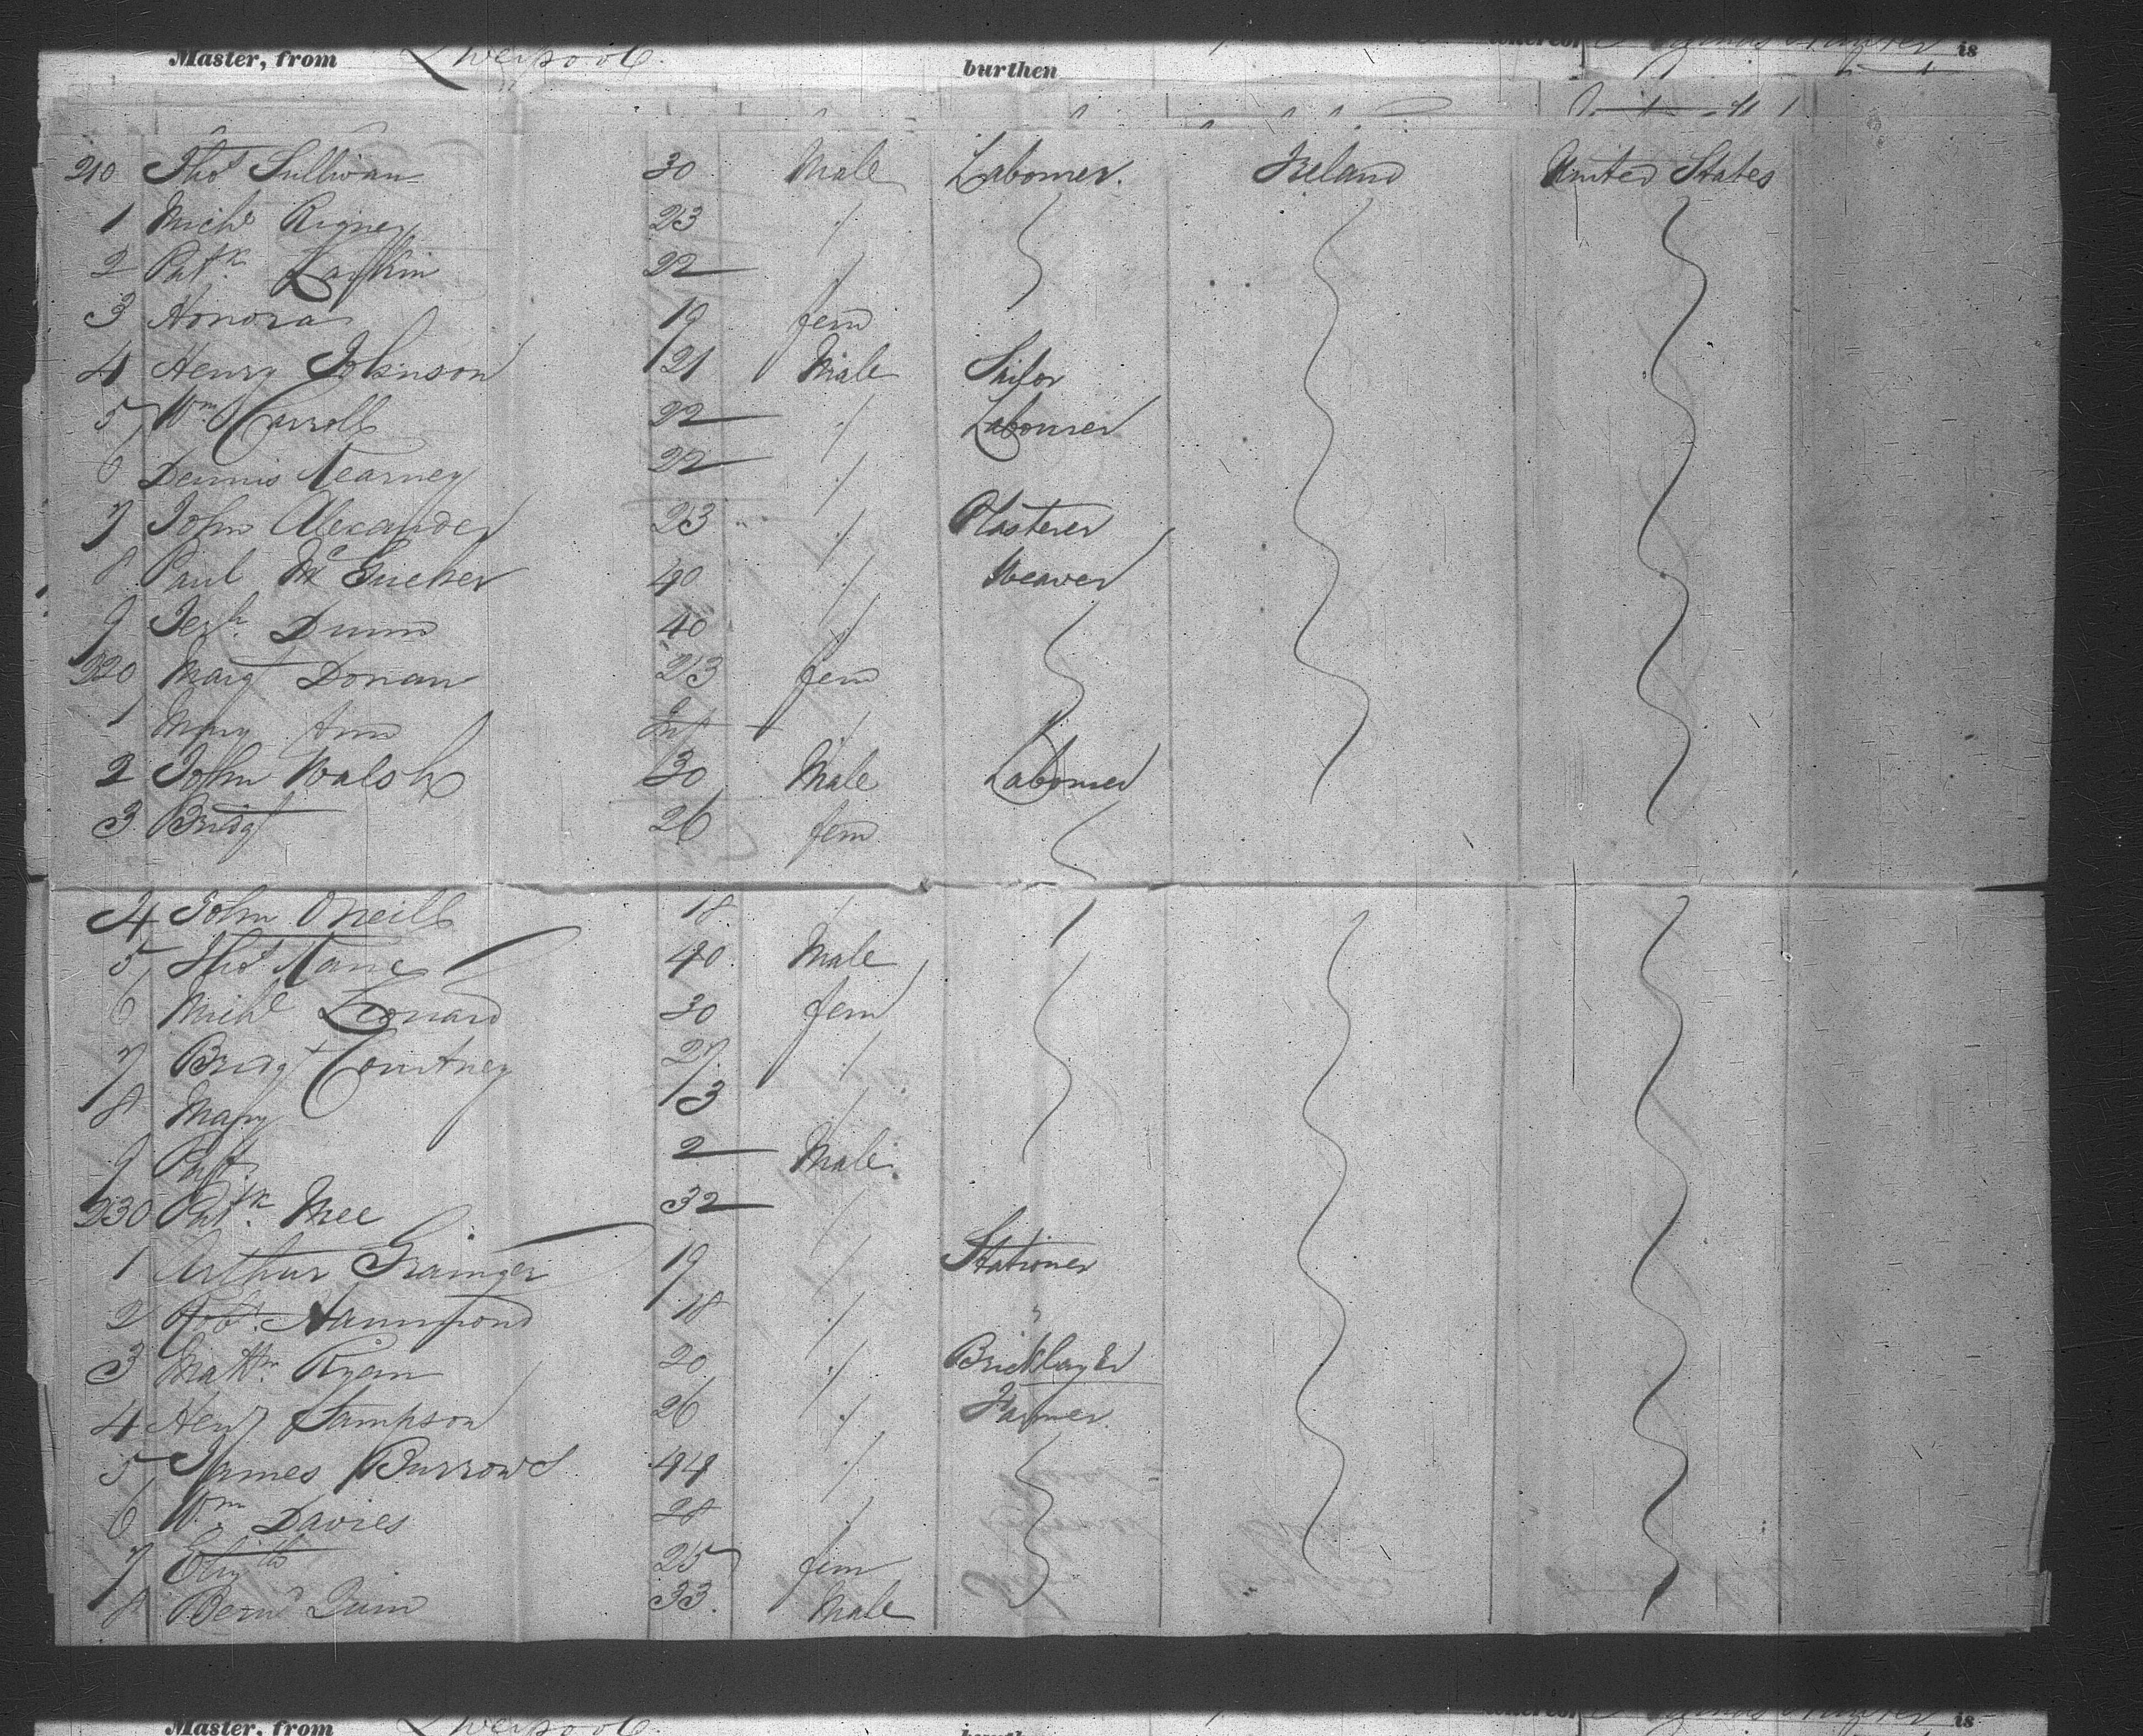 Master, from Liverpool burthen is
210 Thos Sullivan 30 Male Labourer Ireland United States
1 Michl Rigney 23 "
2 Patk Larkin 22 "
3 Honora 19 fem
4 Henry Johnson 21 Male Sailor
5 Wm Carroll 22 " Labourer
6 Dennis Kearney 22 "
7 John Alexander 23 " Plasterer
8 Paul Mc 40 " Weaver
9 Jerh Dunn 40 "
220 Margt Donan 23 fem
1 Mary Ann Inf "
2 John Walsh 30 Male Labourer
3 Bridgt 26 fem
4 John ONeill 18 "
5 Thos Kane 40 Male
6 Michl Leonard 30 fem
7 Bridgt Courtney 27 "
8 Mary 3 "
9 Pat 2 Male
230 Patk Mee 32 "
1 Arthur Grainger 19 " Stationer
2 Robt Hammond 18 " "
3 Matthw Ryan 20 " Bricklayer
4 Heny Sampson 26 " Farmer
5 James Burrows 44 "
6 Wm Davies 28 "
7 Elizth 25 fem
8 Bernd Quin 33 Male
Master, from Liverpool burthen is